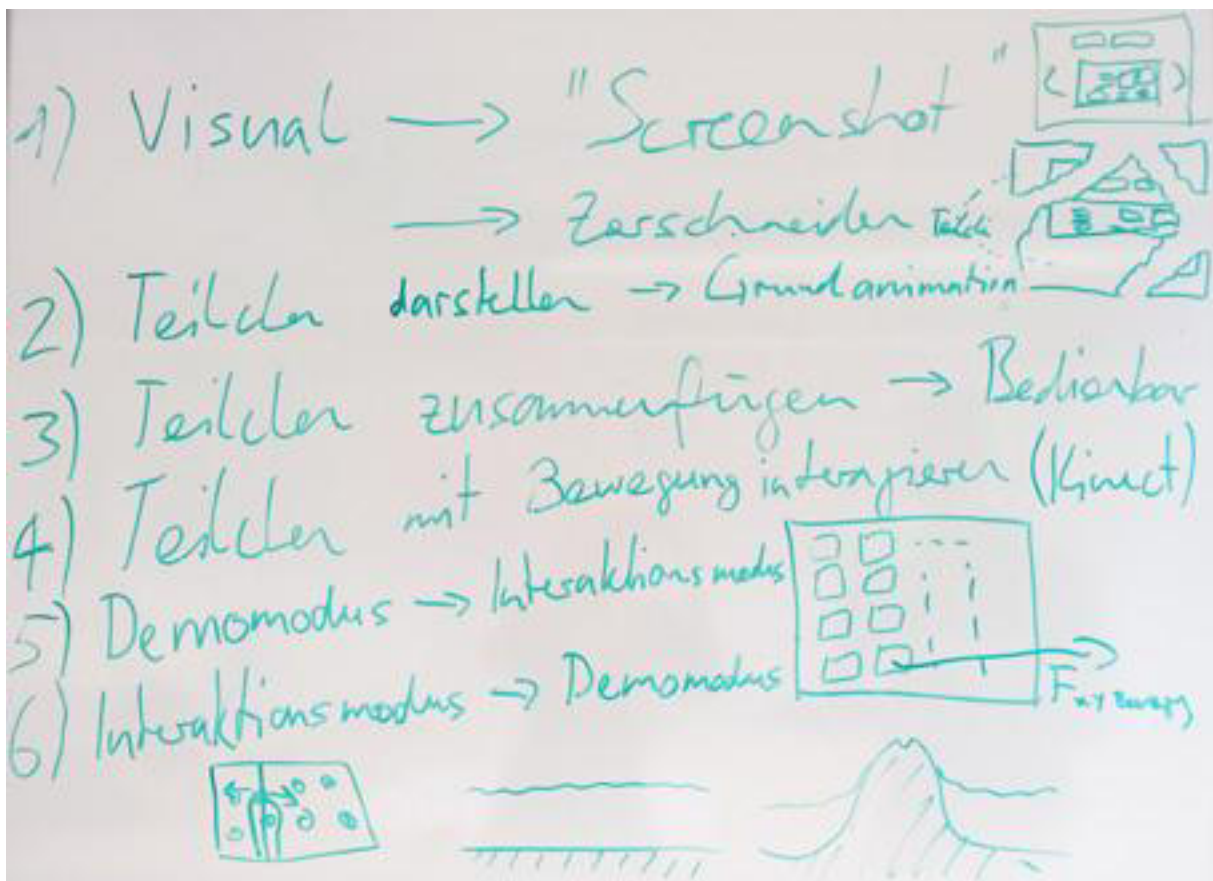 1) Visual → "Screenshot"
→ Zerschneiden
2) Teilchen darstellen → Grundanimation
3) Teilchen zusammenfügen → Bedienbar
4) Teilchen mit Bewegung interagieren (Kinect)
5) Demomodus → Interaktionsmodus
6) Interaktionsmodus → Demomodus